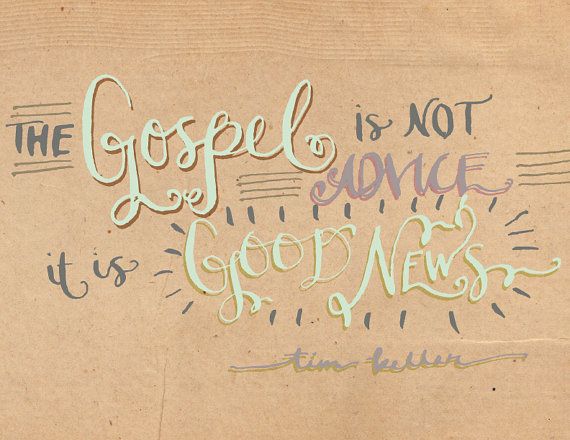 THE Gospel is NOT
ADVICE
it is GOOD NEWS
tim keller